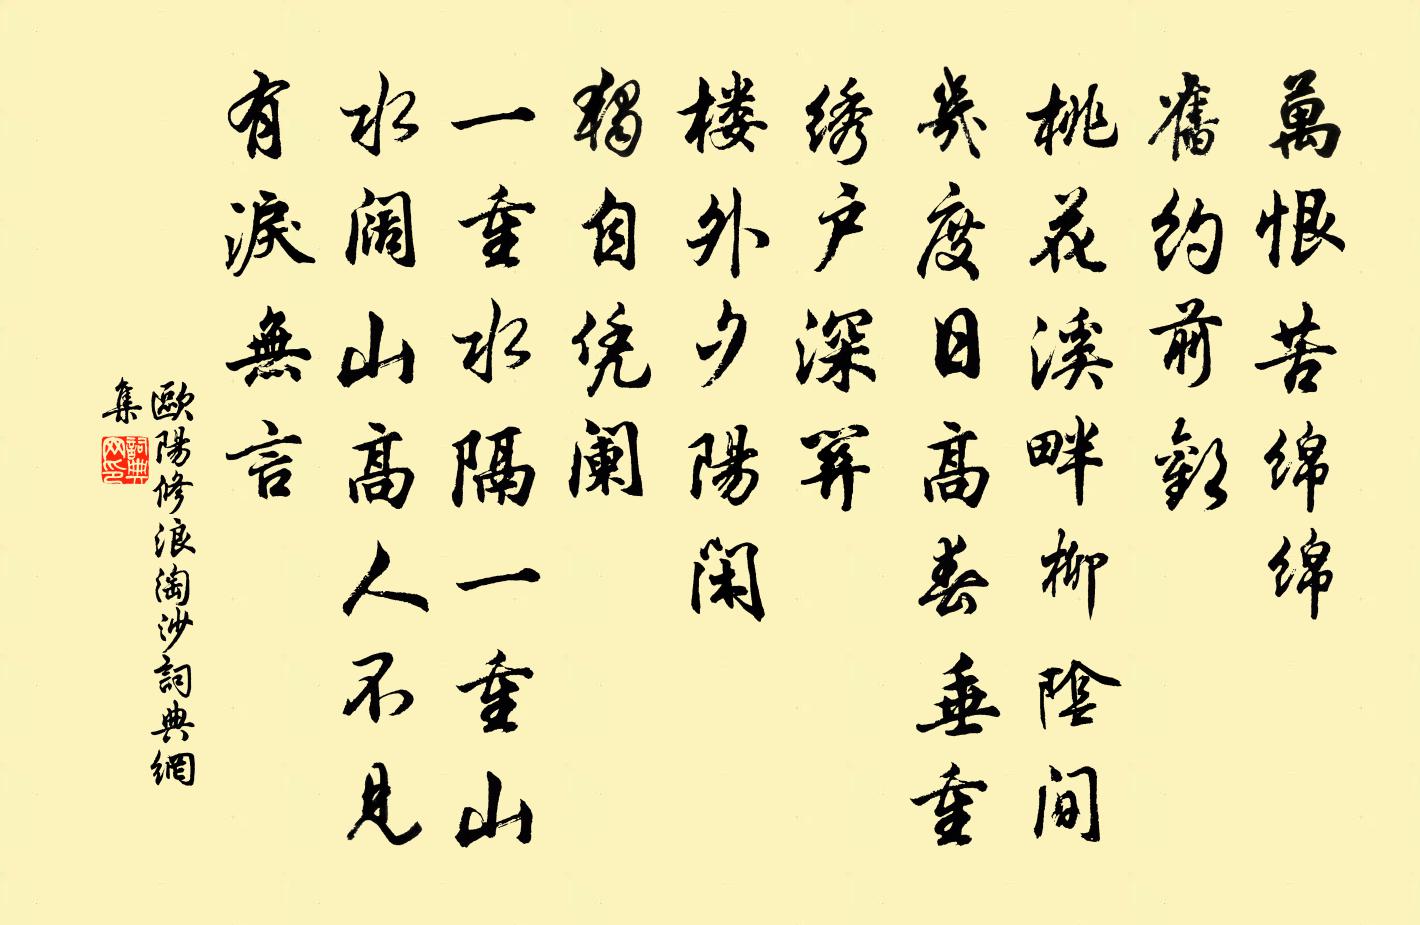 萬恨苦綿綿
舊約前歡
桃花溪畔柳陰間
幾度日高春垂重
綉户深關
楼外夕陽閑
獨自凭闌
一重水隔一重山
水闊山高人不見
有淚無言
歐陽修浪淘沙詞典網
集
詞典
网印